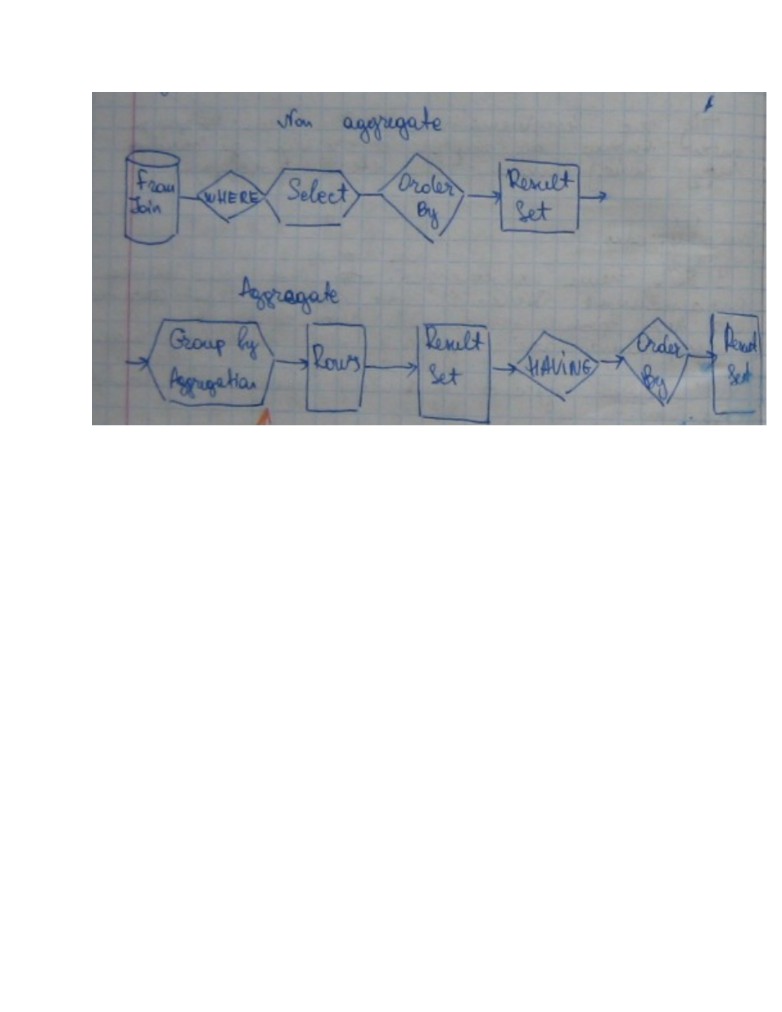 Non aggregate
From
Join
WHERE
Select
Order
By
Result
Set
Aggregate
Group by
Aggregation
Rows
Result
Set
HAVING
Order
By
Result
Set